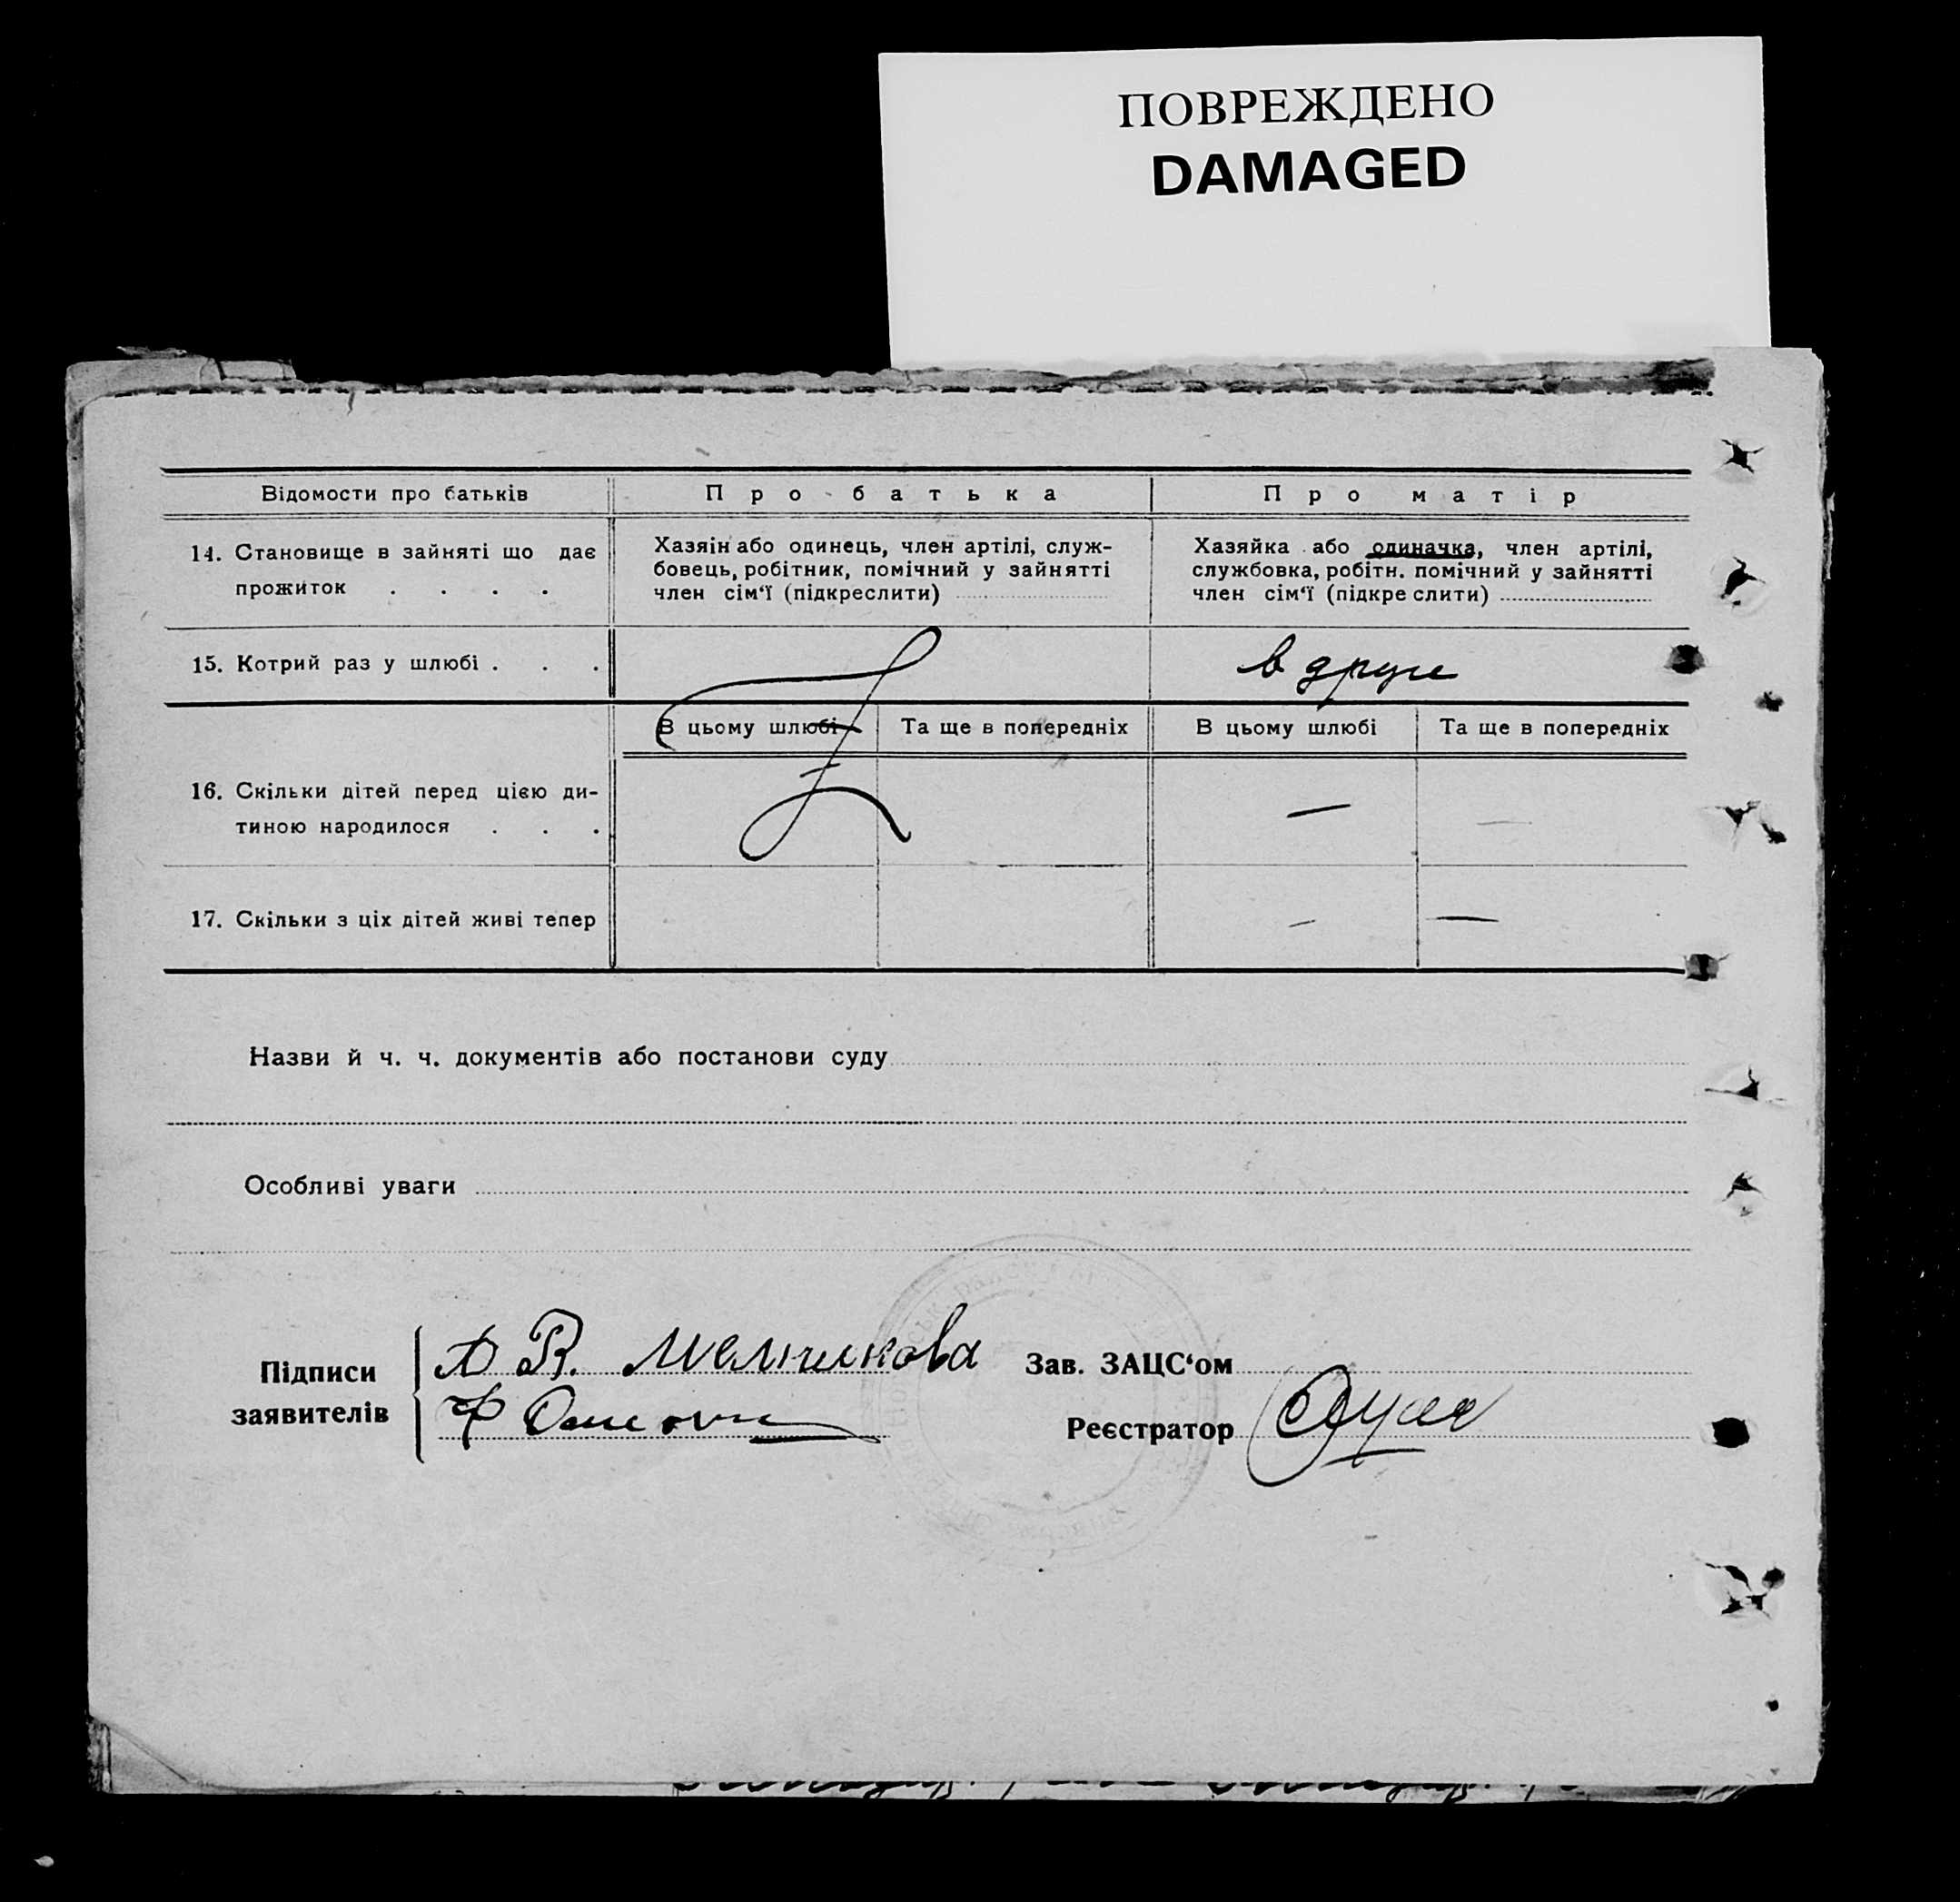 ПОВРЕЖДЕНО
DAMAGED
Відомости про батьків
Про батька
Про матір
14. Становище в зайняті що дає
прожиток . . . .
Хазяін або одинець, член артілі, служ-
бовець, робітник, помічний у зайнятті
член сім‘ї (підкреслити)
Хазяйка або одиначка, член артілі,
службовка, робітн. помічний у зайнятті
член сім‘ї (підкреслити)
15. Котрий раз у шлюбі . . .
в друге
В цьому шлюбі
Та ще в попередніх
В цьому шлюбі
Та ще в попередніх
16. Скільки дітей перед цією ди-
тиною народилося . . .
—
—
17. Скільки з ціх дітей живі тепер
—
—
Назви й ч. ч. документів або постанови суду
Особливі уваги
Підписи
заявителів
Мельникова
Зав. ЗАЦС‘ом
Реєстратор